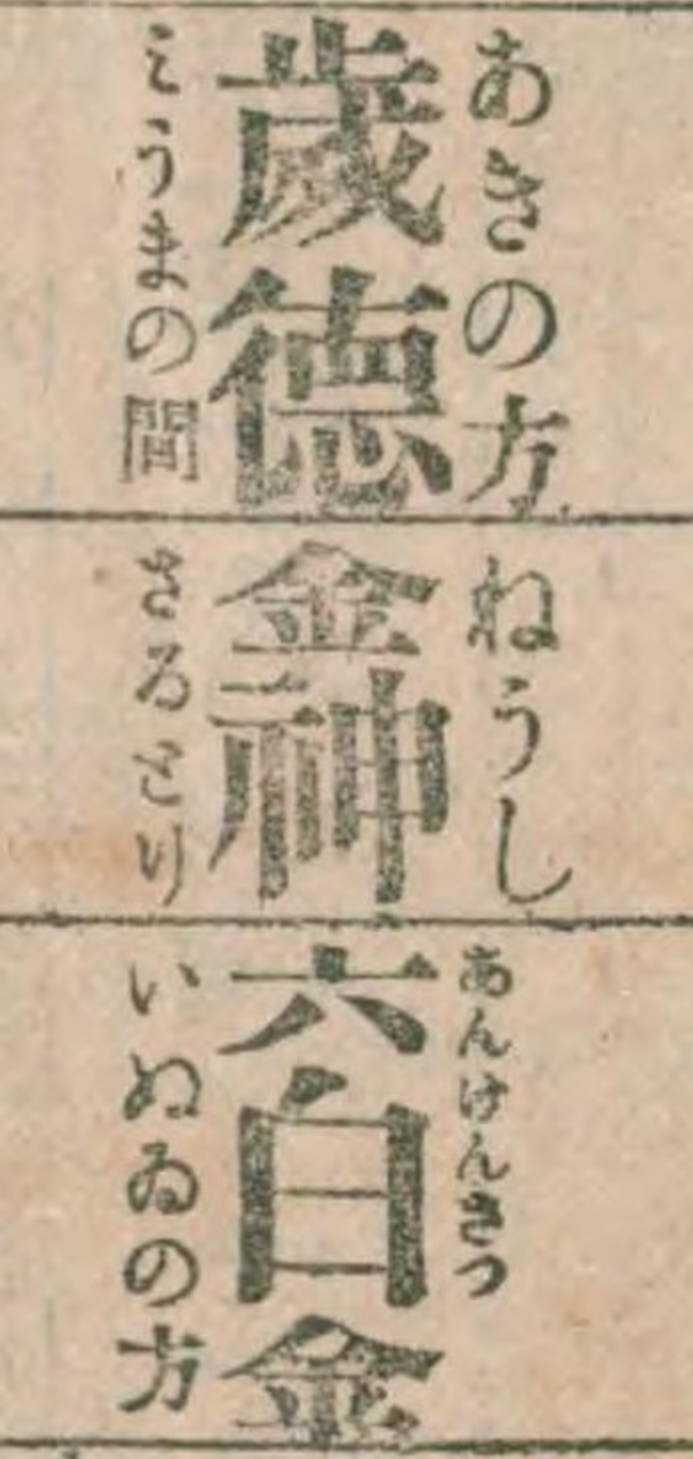 あきの方
歳徳
みうまの間
ねうし
金神
さるとり
あんけんきつ
六白金
いぬゐの方